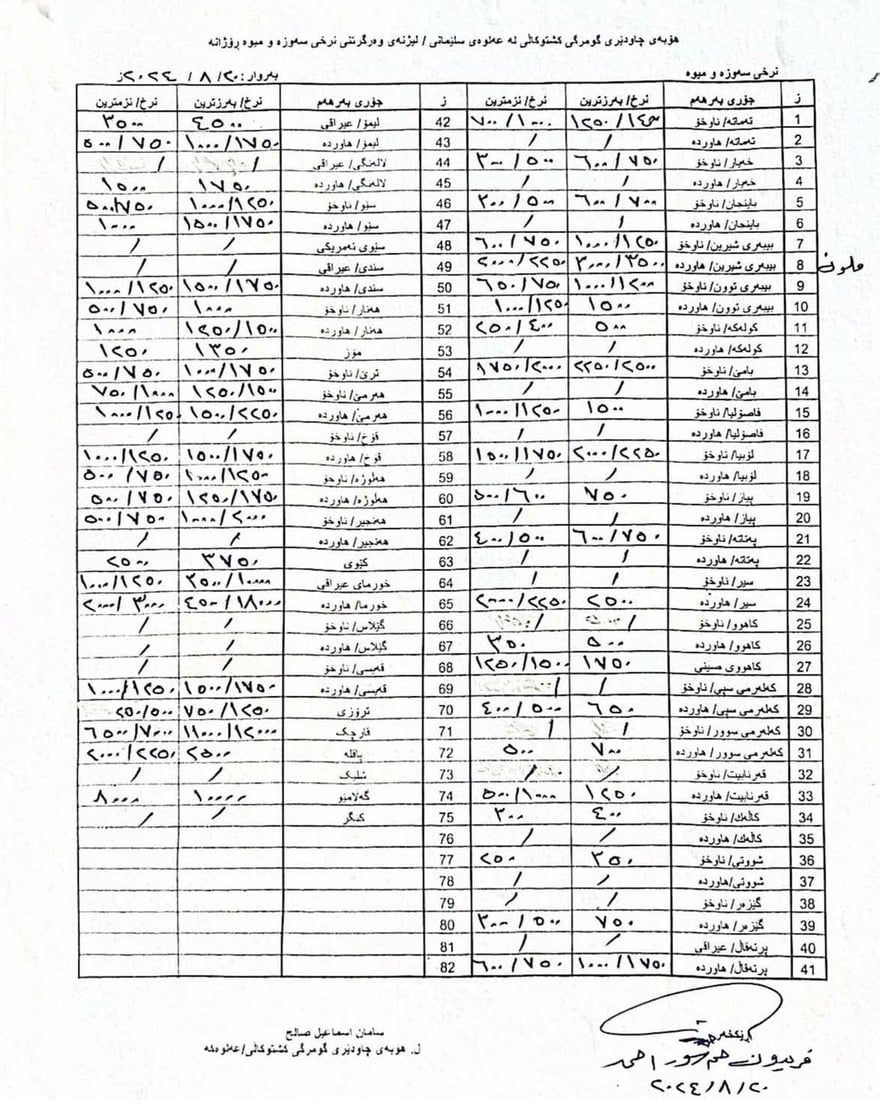 هۆبەی چاودێری گومرگی کشتوکاڵی لە عەلوەی سلێمانی / لیژنەی وەرگرتنی نرخی سەوزە و میوە ڕۆژانە
نرخی سەوزە و میوە بەروار: ٢٠/ ٨ / ٢٠٢٤ز
ز جۆری بەرهەم نرخ/ بەرزترین نرخ/ نزمترین ز جۆری بەرهەم نرخ/ بەرزترین نرخ/ نزمترین
1 تەماتە/ ناوخۆ ٧٠٠/١٠٠٠ 42 لیمۆ/ عیراقی ٤٥٠٠ ٣٥٠٠
2 تەماتە/ هاوردە / / 43 لیمۆ/ هاوردە ١٠٠٠/١٧٥٠ ٥٠٠/٧٥٠
3 خەیار/ ناوخۆ ٦٠٠/٧٥٠ ٣٠٠/٥٠٠ 44 لالەنگی/ عیراقی / /
4 خەیار/ هاوردە / / 45 لالەنگی/ هاوردە ١٧٥٠ ١٥٠٠
5 باینجان/ ناوخۆ ٦٠٠/٧٠٠ ٣٠٠/٥٠٠ 46 سێو/ ناوخۆ ١٠٠٠/١٢٥٠ ٥٠٠/٧٥٠
6 باینجان/ هاوردە / / 47 سێو/ هاوردە ١٥٠٠/١٧٥٠ ١٠٠٠
7 بیبەری شیرین/ ناوخۆ ١٠٠٠/١٢٥٠ ٦٠٠/٧٥٠ 48 سێوی ئەمریکی / /
8 بیبەری شیرین/ هاوردە ٣٠٠٠/٣٥٠٠ ٢٠٠٠/٢٢٥٠ 49 سندی/ عیراقی / /
ملون
9 بیبەری توون/ ناوخۆ ١٠٠٠/١٢٠٠ ٦٥٠/٧٥٠ 50 سندی/ هاوردە ١٥٠٠/١٧٥٠ ١٠٠٠/١٢٥٠
10 بیبەری توون/ هاوردە ١٥٠٠ ١٠٠٠/١٢٥٠ 51 هەنار/ ناوخۆ ١٠٠٠ ٥٠٠/٧٥٠
11 کولەکە/ ناوخۆ ٥٠٠ ٢٥٠/٤٠٠ 52 هەنار/ هاوردە ١٢٥٠/١٥٠٠ ١٠٠٠
12 کولەکە/ هاوردە / / 53 مۆز ١٣٥٠ ١٢٥٠
13 بامێ/ ناوخۆ ٢٢٥٠/٢٥٠٠ ١٧٥٠/٢٠٠٠ 54 ترێ/ ناوخۆ ١٠٠٠/١٧٥٠ ٥٠٠/٧٥٠
14 بامێ/ هاوردە / / 55 هەرمێ/ ناوخۆ ١٢٥٠/١٥٠٠ ٧٥٠/١٠٠٠
15 فاصۆلیا/ ناوخۆ ١٥٠٠ ١٠٠٠/١٢٥٠ 56 هەرمێ/ هاوردە ١٥٠٠/٢٢٥٠ ١٠٠٠/١٢٥٠
16 فاصۆلیا/ هاوردە / / 57 قۆخ/ ناوخۆ / /
17 لۆبیا/ ناوخۆ ٢٠٠٠/٢٢٥٠ ١٥٠٠/١٧٥٠ 58 قۆخ/ هاوردە ١٥٠٠/١٧٥٠ ١٠٠٠/١٢٥٠
18 لۆبیا/ هاوردە / / 59 هەلوژە/ ناوخۆ ١٠٠٠/١٢٥٠ ٥٠٠/٧٥٠
19 پیاز/ ناوخۆ ٧٥٠ ٥٠٠/٦٠٠ 60 هەلوژە/ هاوردە ١٢٥٠/١٧٥٠ ٥٠٠/٧٥٠
20 پیاز/ هاوردە / / 61 هەنجیر/ ناوخۆ ١٠٠٠/٢٠٠٠ ٥٠٠/٧٥٠
21 پەتاتە/ ناوخۆ ٦٠٠/٧٥٠ ٤٠٠/٥٠٠ 62 هەنجیر/ هاوردە / /
22 پەتاتە/ هاوردە / / 63 کێوی ٣٧٥٠ ٢٥٠٠
23 سیر/ ناوخۆ / / 64 خورمای عیراقی ٢٥٠٠/١٠٠٠٠ ١٠٠٠/١٢٥٠
24 سیر/ هاوردە ٢٥٠٠ ٢٠٠٠/٢٢٥٠ 65 خورما/ هاوردە ٤٥٠٠/١٨٠٠٠ ٢٠٠٠/٣٠٠٠
25 کاهوو/ ناوخۆ / / 66 گێلاس/ ناوخۆ / /
26 کاهوو/ هاوردە ٥٠٠ ٣٥٠ 67 گێلاس/ هاوردە / /
27 کاهووی صینی ١٧٥٠ ١٢٥٠/١٥٠٠ 68 قەیسی/ ناوخۆ / /
28 کەلەرمی سپی/ ناوخۆ / / 69 قەیسی/ هاوردە ١٥٠٠/١٧٥٠ ١٠٠٠/١٢٥٠
29 کەلەرمی سپی/ هاوردە ٦٥٠ ٤٠٠/٥٠٠ 70 ترۆزی ٧٥٠/١٢٥٠ ٢٥٠/٥٠٠
30 کەلەرمی سوور/ ناوخۆ / / 71 قارچک ١١٠٠٠/١٢٠٠٠ ٦٥٠٠/٧٠٠٠
31 کەلەرمی سوور/ هاوردە ٧٠٠ ٥٠٠ 72 پاقلە ٢٥٠٠ ٢٠٠٠/٢٢٥٠
32 قەرنابیت/ ناوخۆ / / 73 شلیک / /
33 قەرنابیت/ هاوردە ١٢٥٠ ٥٠٠/١٠٠٠ 74 گەلامێو ١٠٠٠٠ ٨٠٠٠
34 کاڵەك/ ناوخۆ ٤٠٠ ٣٠٠ 75 کنگر / /
35 کاڵەك/ هاوردە / / 76
36 شووتی/ ناوخۆ ٣٥٠ ٢٥٠ 77
37 شووتی/هاوردە / / 78
38 گێزەر/ ناوخۆ / / 79
39 گێزەر/ هاوردە ٧٥٠ ٣٠٠/٥٠٠ 80
40 پرتەقاڵ/ عیراقی / / 81
41 پرتەقاڵ/ هاوردە ١٠٠٠/١٧٥٠ ٦٠٠/٧٥٠ 82
ڕێکخەر
فریدون
٢٠٢٤/٨/٢٠
سامان اسماعیل صالح
ل. هۆبەی چاودێری گومرگی کشتوکاڵی/عەلوەکە